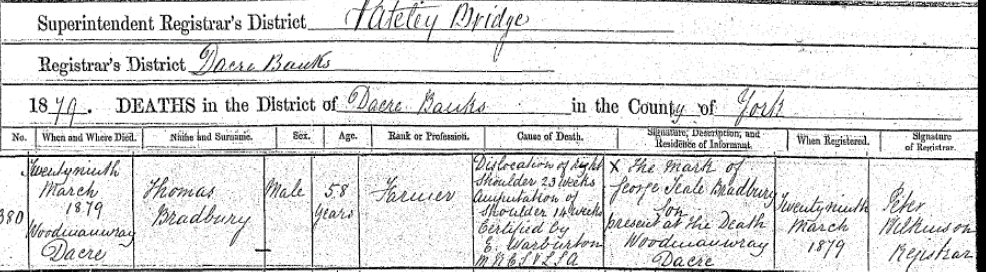 Superintendent Registrar's District Pateley Bridge
Registrar's District Dacre Banks
1879. DEATHS in the District of Dacre Banks in the County of York
No. When and Where Died. Name and Surname. Sex. Age. Rank or Profession. Cause of Death. Signature, Description, and Residence of Informant. When Registered. Signature of Registrar.
380
Twentyninth
March
1879
Woodmanwray
Dacre
Thomas
Bradbury
Male
58
Years
Farmer
Dislocation of right
Shoulder 23 weeks
Amputation of
Shoulder 14 weeks
Certified by
E. Warburton
M R C S & L S A
X The mark of
George Seale Bradbury
Son
present at the Death
Woodmanwray
Dacre
Twentyninth
March
1879
Peter
Wilkinson
Registrar